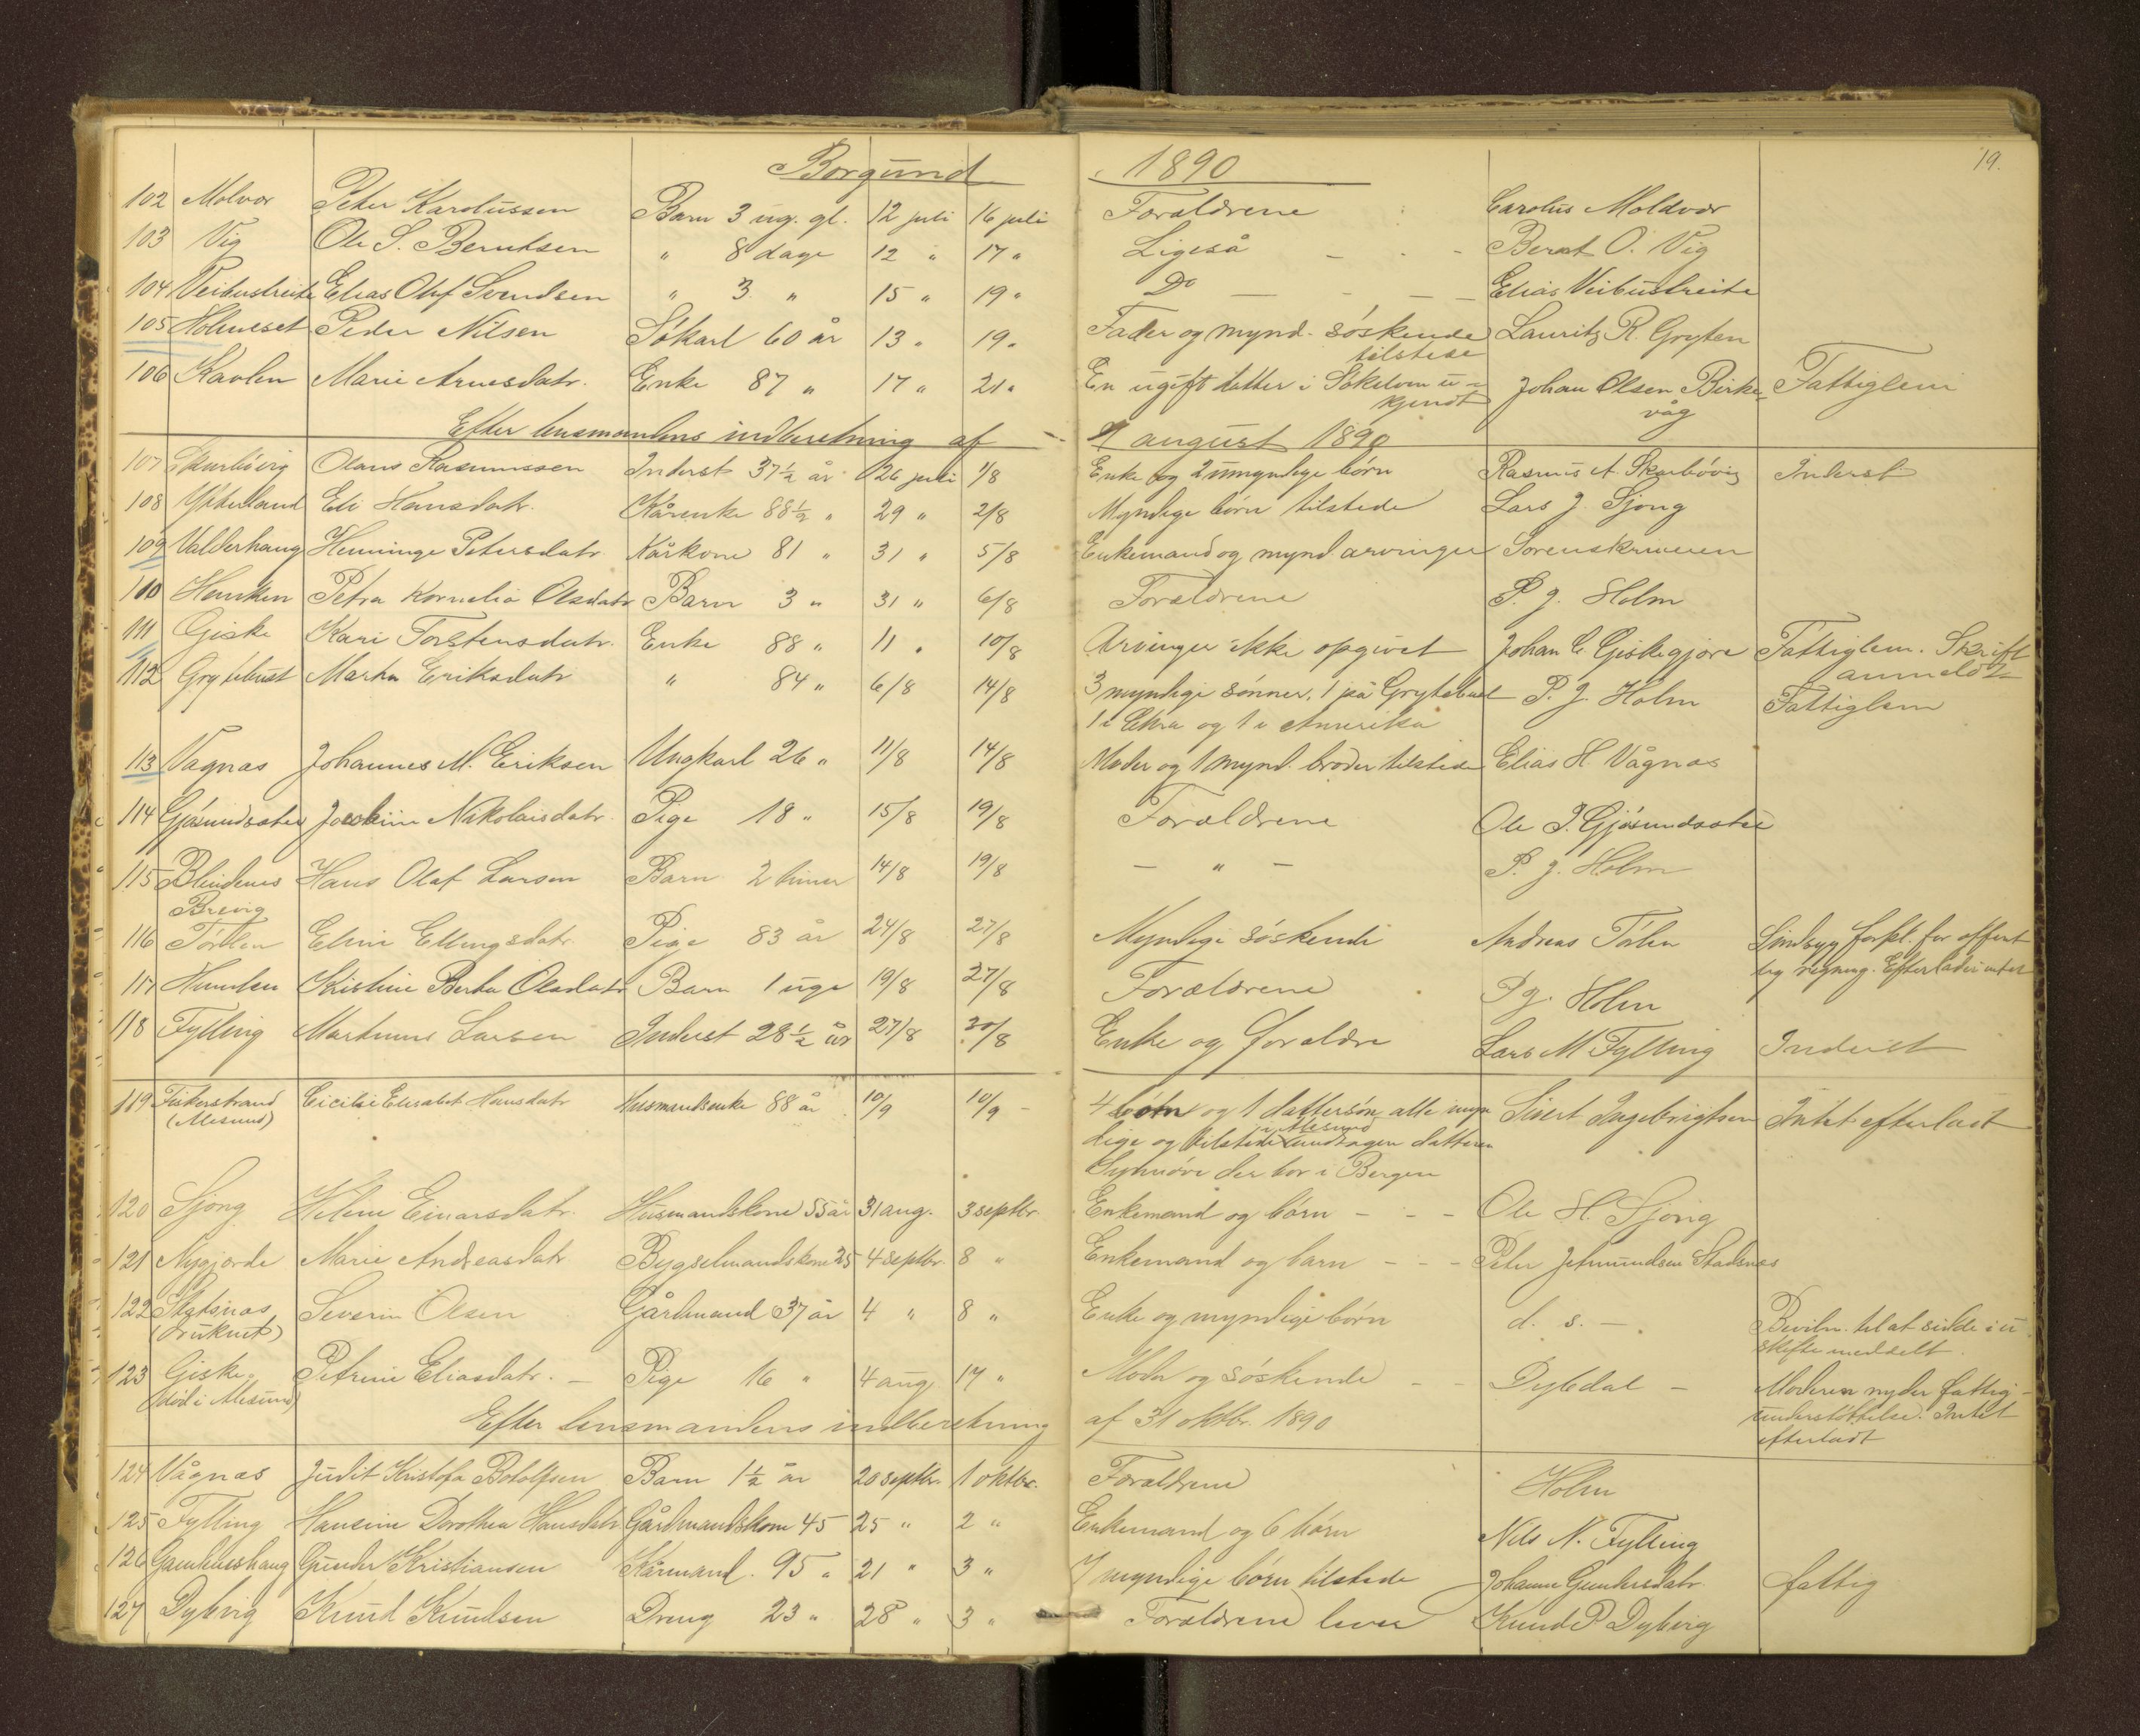 Borgund 1890 19.
102 Molvær Peter Karolussen Barn 3 ug. gl. 12 juli 16 juli Forældrene Carolus Moldvær
103 Vig Ole S. Berntsen " 8 dage 12 " 17 " Ligeså - - - Bernt O. Vig
104 Veibustreite Elias Oluf Svendsen " 3 " 15 " 19 " Do - - - Elias Veibustreite
105 Holmeset Peder Nilsen Søkarl 60 år 13 " 19 " Fader og mynd. søskende Lauritz R. Gryten
tilstede
106 Marie Arnesdatr. Enke 87 " 17 " 21 " En ugift datter i Søkelven u- Johan Olsen Birke- Fattiglem
kjendt våg
Efter lensmandens indberetning af 9 august 1890
107 Skarbøvig Olaus Rasmussen Inderst 37½ år 26 juli 1/8 Enke og 2 umyndige børn Rasmus A. Skarbøvig Inderst
108 Ytterland Eli Hansdatr. Kårenke 88½ " 29 " 2/8 Myndige børn tilstede Lars J. Sjong
109 Valderhaug Henninge Petersdatr. Kårkone 81 " 31 " 5/8 Enkemand og mynd arvinger Sorenskriveren
110 Petra Kornelia Olsdatr Barn 3 " 31 " 6/8 Forældrene P. J. Holm
111 Giske Kari Torstensdatr. Enke 88 " 11 " 10/8 Arvinger ikke opgivet Johan C. Giskegjøre Fattiglem. Skift
anmeldt
112 Grytebust Martha Eriksdatr " 84 " 6/8 14/8 3 myndige sønner, 1 på Grytebust P. J. Holm Fattiglem
1 i og 1 i Amerika
113 Vågnæs Johannes M. Eriksen Ungkarl 26 " 11/8 14/8 Moder og 1 mynd. broder tilstede Elias H. Vågnæs
114 Gjøsundsæter Nikolaisdatr. Pige 18 " 15/8 19/8 Forældrene Ole J. Gjøsundsæter
115 Blindenes Hans Olaf Larsen Barn 2 timer 14/8 19/8 - " - P. J. Holm
Brevig
116 Tørlen Eline Ellingsdatr. Pige 83 år 24/8 27/8 Myndige søskende Andreas Tørlen Sindsyg forpl. for offent
lig regning. Efterlader intet
117 Kristine Berta Olsdatr Barn 1 uge 19/8 27/8 Forældrene P. J. Holm
118 Fylling Martinus Larsen Inderst 28½ år 27/8 30/8 Enke og forældre Lars M Fylling Inderst
119 Fiskerstrand Cicilie Elisabet Hansdatr Husmandsenke 88 år 10/9 10/9 - 4 børn og 1 dattersøn alle myn Sivert Ingebrigtsen Intet efterladt
(Alesund) dige og tilstede i Alesund undtagen datteren
Synnøve der bor i Bergen
120 Sjong Helene Einarsdatr. Husmandskone 55 år 31 aug. 3 septbr. Enkemand og børn - - - Ole H. Sjong
121 Nygjorde Marie Andreasdatr Bygselmandskone 35 4 septbr. 8 " Enkemand og barn - - - Peter Jetmundsen Stadsnes
122 Statsnæs Severin Olsen Gårdmand 37 år 4 " 8 " Enke og myndige børn d. s. - Beviln. til at sidde i u
(druknet) skifte meddelt.
123 Giske Petrine Eliasdatr. - Pige 16 " 4 aug 17 " Moder og søskende - - Dybdal - Moderen nyder fattig-
(død i Alesund) understøttelse. Intet
efterladt
Efter lensmandens indberetning af 31 oktbr. 1890
124 Vågnæs Judit Kristofa Botolfsen Barn 1½ år 20 septbr. 1 oktbr. Forældrene Holm
125 Fylling Hansine Dorothea Hansdatr. Gårdmandskone 45 25 " 2 " Enkemand og 6 børn Nils N. Fylling
126 Gamlemshaug Gunder Kristiansen Kårmand. 95 " 21 " 3 " 7 myndige børn tilstede Johanne Gundersdatr. fattig
127 Dybvig Knud Knudsen Dreng 23 " 28 " 3 " Forældrene lever Knud P Dybvig